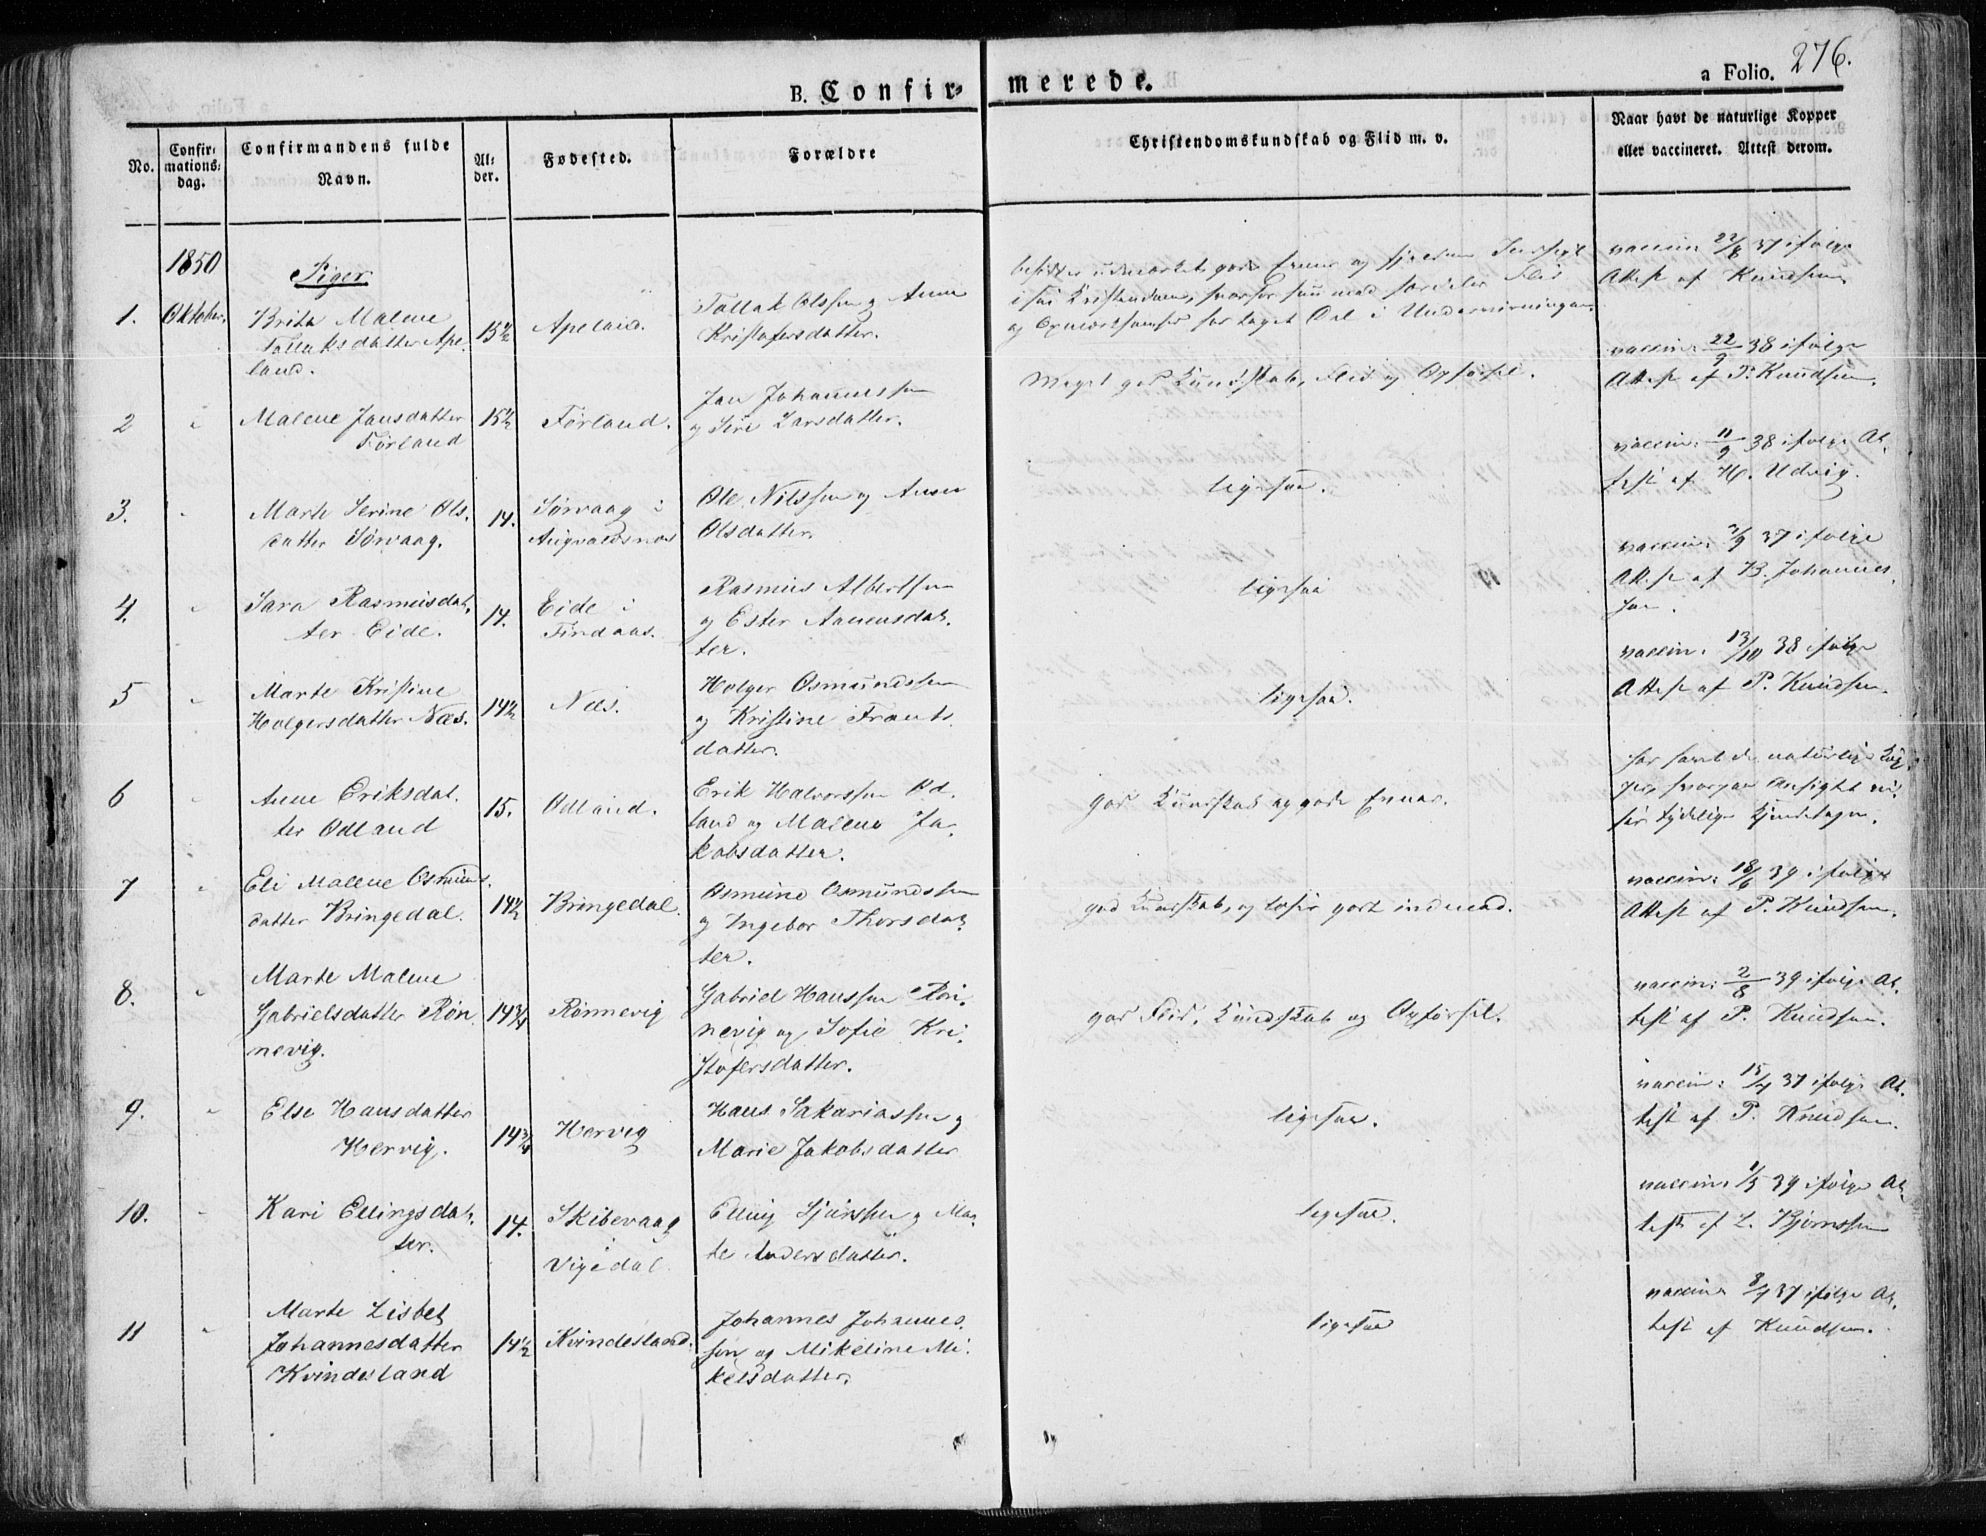 276.
B. Confirmerede.
a Folio.
No.
Confirmations-dag.
Confirmandens fulde Navn.
Alder.
Fødested.
Forældre
Christendomskundskab og Flid m. v.
Naar havt de naturlige Kopper eller vaccineret. Attest derom.
1850
Piger.
1. Oktober. Brita Malene
Tollaksdatter Apeland.
15½
Apeland.
Tollak Olssen og Anne
Kristofersdatter.
besidder udmærket gode Evner og
i sin Kristendom, hvorfor hun med Flid
og Opmærksomhed har taget Del i Undervisningen.
vaccin: 22/8 37 ifølge
Attest af Knudsen.
2 " Malene Jansdatter
Førland
15½
Førland.
Jan Johannessen
og Siri Larsdatter.
Meget god Kundskab, Flid og Opførsel.
vaccin: 22/9 38 ifølge
Attest af P. Knudsen.
3. " Marte Serine Ols-
datter Sørvaag.
14.
Sørvaag i
Augvaldsnæs
Ole Nilssen og Anne
Olsdatter.
ligesaa.
vaccin: 11/9 38 ifølge At-
test af H. Udvig.
4. " Sara Rasmusdat-
ter Eide.
14.
Eide i
Findaas.
Rasmus Albertsen
og Ester Aamunsdat-
ter.
ligesaa
vaccin: 2/9 37 ifølge
Attest af B. Johannes-
sen.
5 " Marte Kristine
Holgersdatter Næs.
14½
Næs.
Holger Osmundssen
og Kristine Frants-
datter.
ligesaa.
vaccin. 13/10 38 ifølge
Attest af P. Knudsen.
6 " Anne Eriksdat-
ter Odland
15.
Odland.
Erik Halvorssen Od-
land og Malene Ja-
kobsdatter.
god Kundskab og gode Evner.
har havt de naturlige Kop-
per, hvorpaa Ansigt
tydelige Kjendetegn.
7 " Eli Malene Osmunds-
datter Bringedal.
14½
Bringedal.
Osmund Osmundssen
og Ingebor Thorsdat-
ter.
god Kundskab, og læser godt indenad.
vaccin: 18/6 39 ifølge
Attest af P. Knudsen.
8. " Marte Malene
Gabrielsdatter Røn-
nevig.
14¾
Rønnevig
Gabriel Hanssen Røn-
nevig og Sofie Kri-
stofersdatter.
god Flid, Kundskab og Opførsel.
vaccin: 2/8 39 ifølge At-
test af P. Knudsen.
9. " Else Hansdatter
Hervig.
14¾
Hervig
Hans Sakariassen og
Marie Jakobsdatter
ligesaa.
vaccin: 15/7 37 ifølge At-
test af P. Knudsen.
10. " Kari Ellingsdat-
ter.
14.
Skibevaag
i
Vigedal.
Elling og Mar-
te Andersdatter.
ligesaa.
vaccin: 1/5 39 ifølge At-
test af L. Bjørnssen
11 " Marte Lisbet
Johannesdatter
Kvindesland
14½
Kvindesland.
Johannes Johannes-
sen og Mikeline Mi-
kelsdatter.
ligesaa
vaccin: 8/7 37 ifølge At-
test af Knudsen.